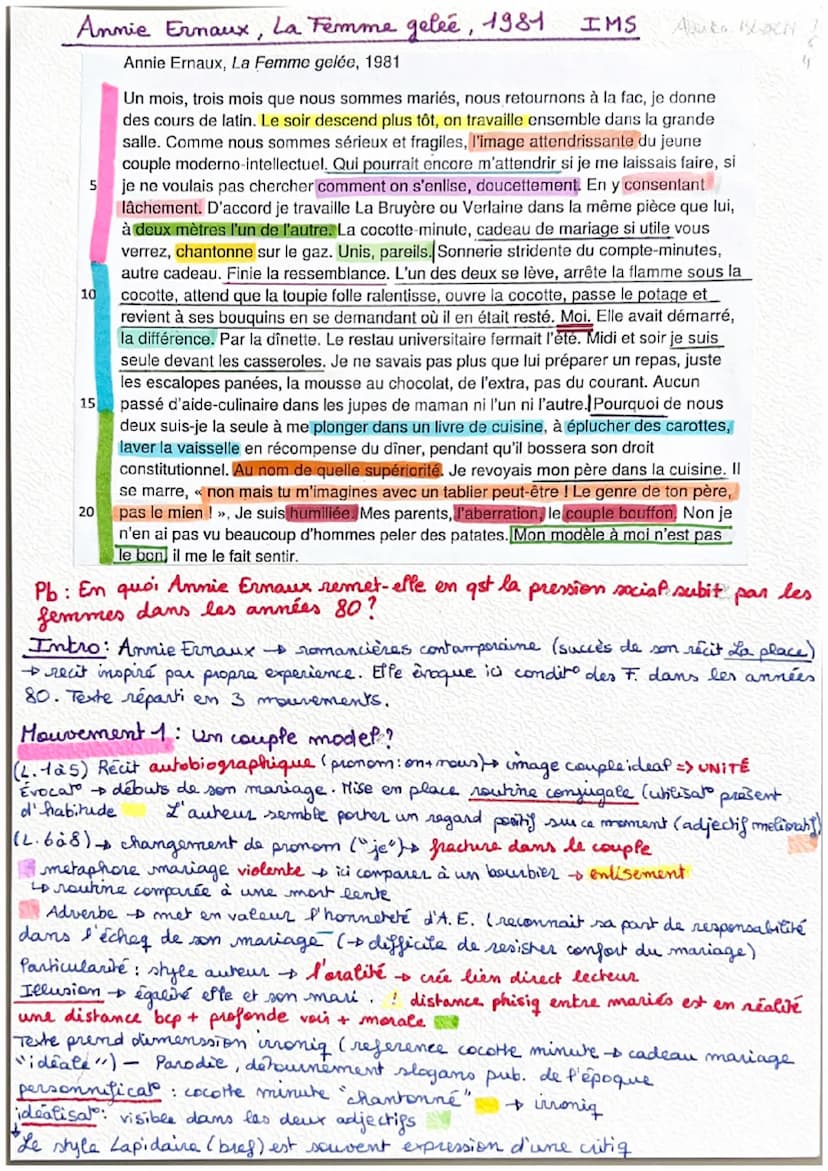 Annie Ernaux, La Femme gelée, 1981 IMS
Annie Ernaux, La Femme gelée, 1981
Un mois, trois mois que nous sommes mariés, nous retournons à la fac, je donne
des cours de latin. Le soir descend plus tôt, on travaille ensemble dans la grande
salle. Comme nous sommes sérieux et fragiles, l'image attendrissante du jeune
couple moderno-intellectuel. Qui pourrait encore m'attendrir si je me laissais faire, si
5 je ne voulais pas chercher comment on s'enlise, doucettement. En y consentant
lâchement. D'accord je travaille La Bruyère ou Verlaine dans la même pièce que lui,
à deux mètres l'un de l'autre. La cocotte-minute, cadeau de mariage si utile vous
verrez, chantonne sur le gaz. Unis, pareils. Sonnerie stridente du compte-minutes,
autre cadeau. Finie la ressemblance. L'un des deux se lève, arrête la flamme sous la
10 cocotte, attend que la toupie folle ralentisse, ouvre la cocotte, passe le potage et
revient à ses bouquins en se demandant où il en était resté. Moi. Elle avait démarré,
la différence. Par la dînette. Le restau universitaire fermait l'été. Midi et soir je suis
seule devant les casseroles. Je ne savais pas plus que lui préparer un repas, juste
les escalopes panées, la mousse au chocolat, de l'extra, pas du courant. Aucun
15 passé d'aide-culinaire dans les jupes de maman ni l'un ni l'autre. Pourquoi de nous
deux suis-je la seule à me plonger dans un livre de cuisine, à éplucher des carottes,
laver la vaisselle en récompense du dîner, pendant qu'il bossera son droit
constitutionnel. Au nom de quelle supériorité. Je revoyais mon père dans la cuisine. Il
se marre, « non mais tu m'imagines avec un tablier peut-être ! Le genre de ton père,
20 pas le mien ! ». Je suis humiliée. Mes parents, l'aberration, le couple bouffon. Non je
n'en ai pas vu beaucoup d'hommes peler des patates. Mon modèle à moi n'est pas
le bon, il me le fait sentir.
Pb : En quoi Annie Ernaux remet-elle en qst la pression social subit par les
femmes dans les années 80 ?
Intro : Annie Ernaux → romancières contemporaine (succès de son récit La place)
→ recit inspiré par propre experience. Elle èvoque ici condit° des F. dans les années
80. Texte réparti en 3 mouvements.
Mouvement 1 : Un couple model ?
(L. 1 à 5) Récit autobiographique (pronom : on + nous) → image couple ideal => UNITÉ
Évocat° → débuts de son mariage. Mise en place routine conjugale (utilisat° présent
d'habitude L'auteur semble porter un regard positif sur ce moment (adjectif melioratif)
(L. 6 à 8) → changement de pronom ("je") → fracture dans le couple
metaphore mariage violente → ici comparer à un bourbier → enlisement
↳ routine comparée à une mort lente
Adverbe → met en valeur l'honneteté d'A.E. (reconnait sa part de responsabilité
dans l'échec de son mariage (→ difficile de resister confort du mariage)
Particularité : style auteur → l'oralité → crée lien direct lecteur
Illusion → égalité elle et son mari. ! distance phisiq entre mariés est en réalité
une distance bcp + profonde voir + morale
Texte prend dimenssion irroniq (reference cocotte minute → cadeau mariage
"idéale") – Parodie, détournement slogans pub. de l'époque
personnificat° : cocotte minute "chantonne" → irroniq
idéalisat° : visible dans les deux adjectifs
↓ Le style Lapidaire (bref) est souvent expression d'une critiq